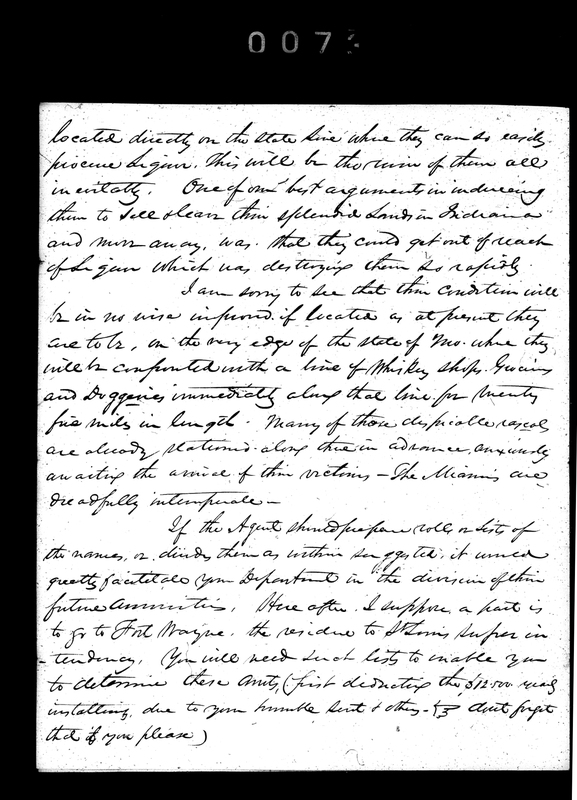 007
located directly on the State line where they can so easily
procure Liquor. This will be the ruin of them all
inevitably. One of our best arguments in inducing
them to sell & leave their splendid Lands in Indiana
and move away, was that they could get out of reach
of Liquor which was destroying them so rapidly
I am sorry to see that their condition will
be in no wise improved if located as at present they
are to be, on the very edge of the state of Mo. where they
will be confronted with a line of Whiskey shops, Groceries
and Doggeries immediately along that line for twenty
five miles in length. Many of those despicable rascals
are already stationed along there in advance, anxiously
awaiting the arrival of their victims – The Miamis are
dreadfully intemperate –
If the Agent should prepare rolls or Lists of
the names, or divide them as within suggested, it would
greatly facilitate your Department in the division of their
future annuities. Here after, I suppose, a part is
to go to Fort Wayne, the residue to St Louis superin
tendency. You will need such lists to enable you
to determine these amts, (first deducting the $12.500 yearly
installing, due to your humble Servt & others – dont forget
that if you please)